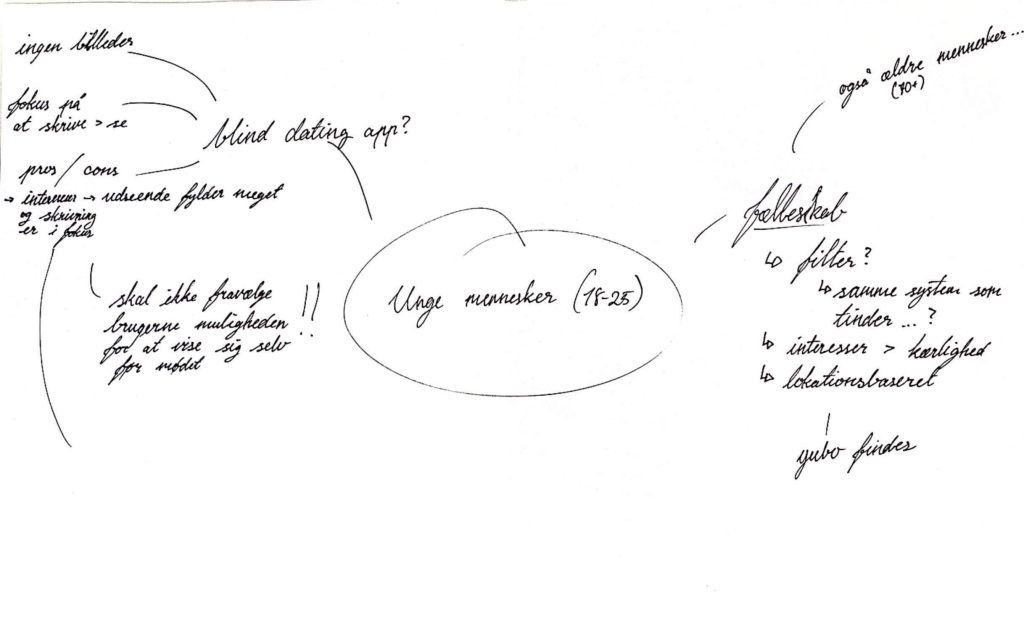 ingen billeder
fokus på
at skrive > se
blind dating app?
pros / cons
→ interesser → udseende fylder meget
og skrivning
er i fokus
skal ikke fravælge
brugerne muligheden
for at vise sig selv
før mødet
!!
Unge mennesker (18-25)
også ældre mennesker...
(40+)
fællesskab
↳ filter?
↳ samme system som
tinder ... ?
↳ interesser > kærlighed
↳ lokationsbaseret
yubo findes